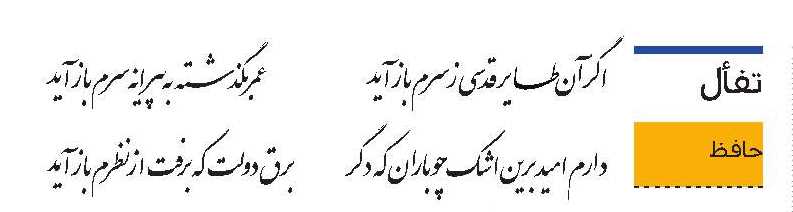 تفأل
حافظ
اگر آن طایر قدسی ز سرم بازآید
عمر بگذشته به پیرانه سرم بازآید
دارم امید برین اشک چو باران که دگر
برق دولت که برفت از نظرم بازآید